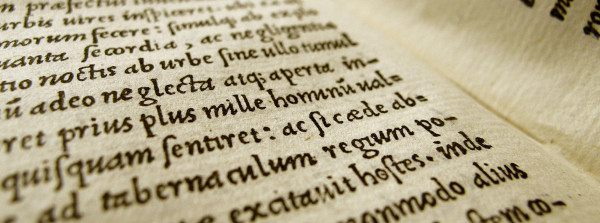 præfectur
urbis uires inspiceret
morum fecere: simulq; ab exple
uanta secordia, ac negligentia
tio noctis ab urbe sine ullo tumul
nū adeo neglecta atq; aperta in-
ret prius plus mille hominū ual=
quisquam sentiret: ac si cæde ab=
ad tabernaculum regium po-
excitauit hostes. inde
nmodo alius